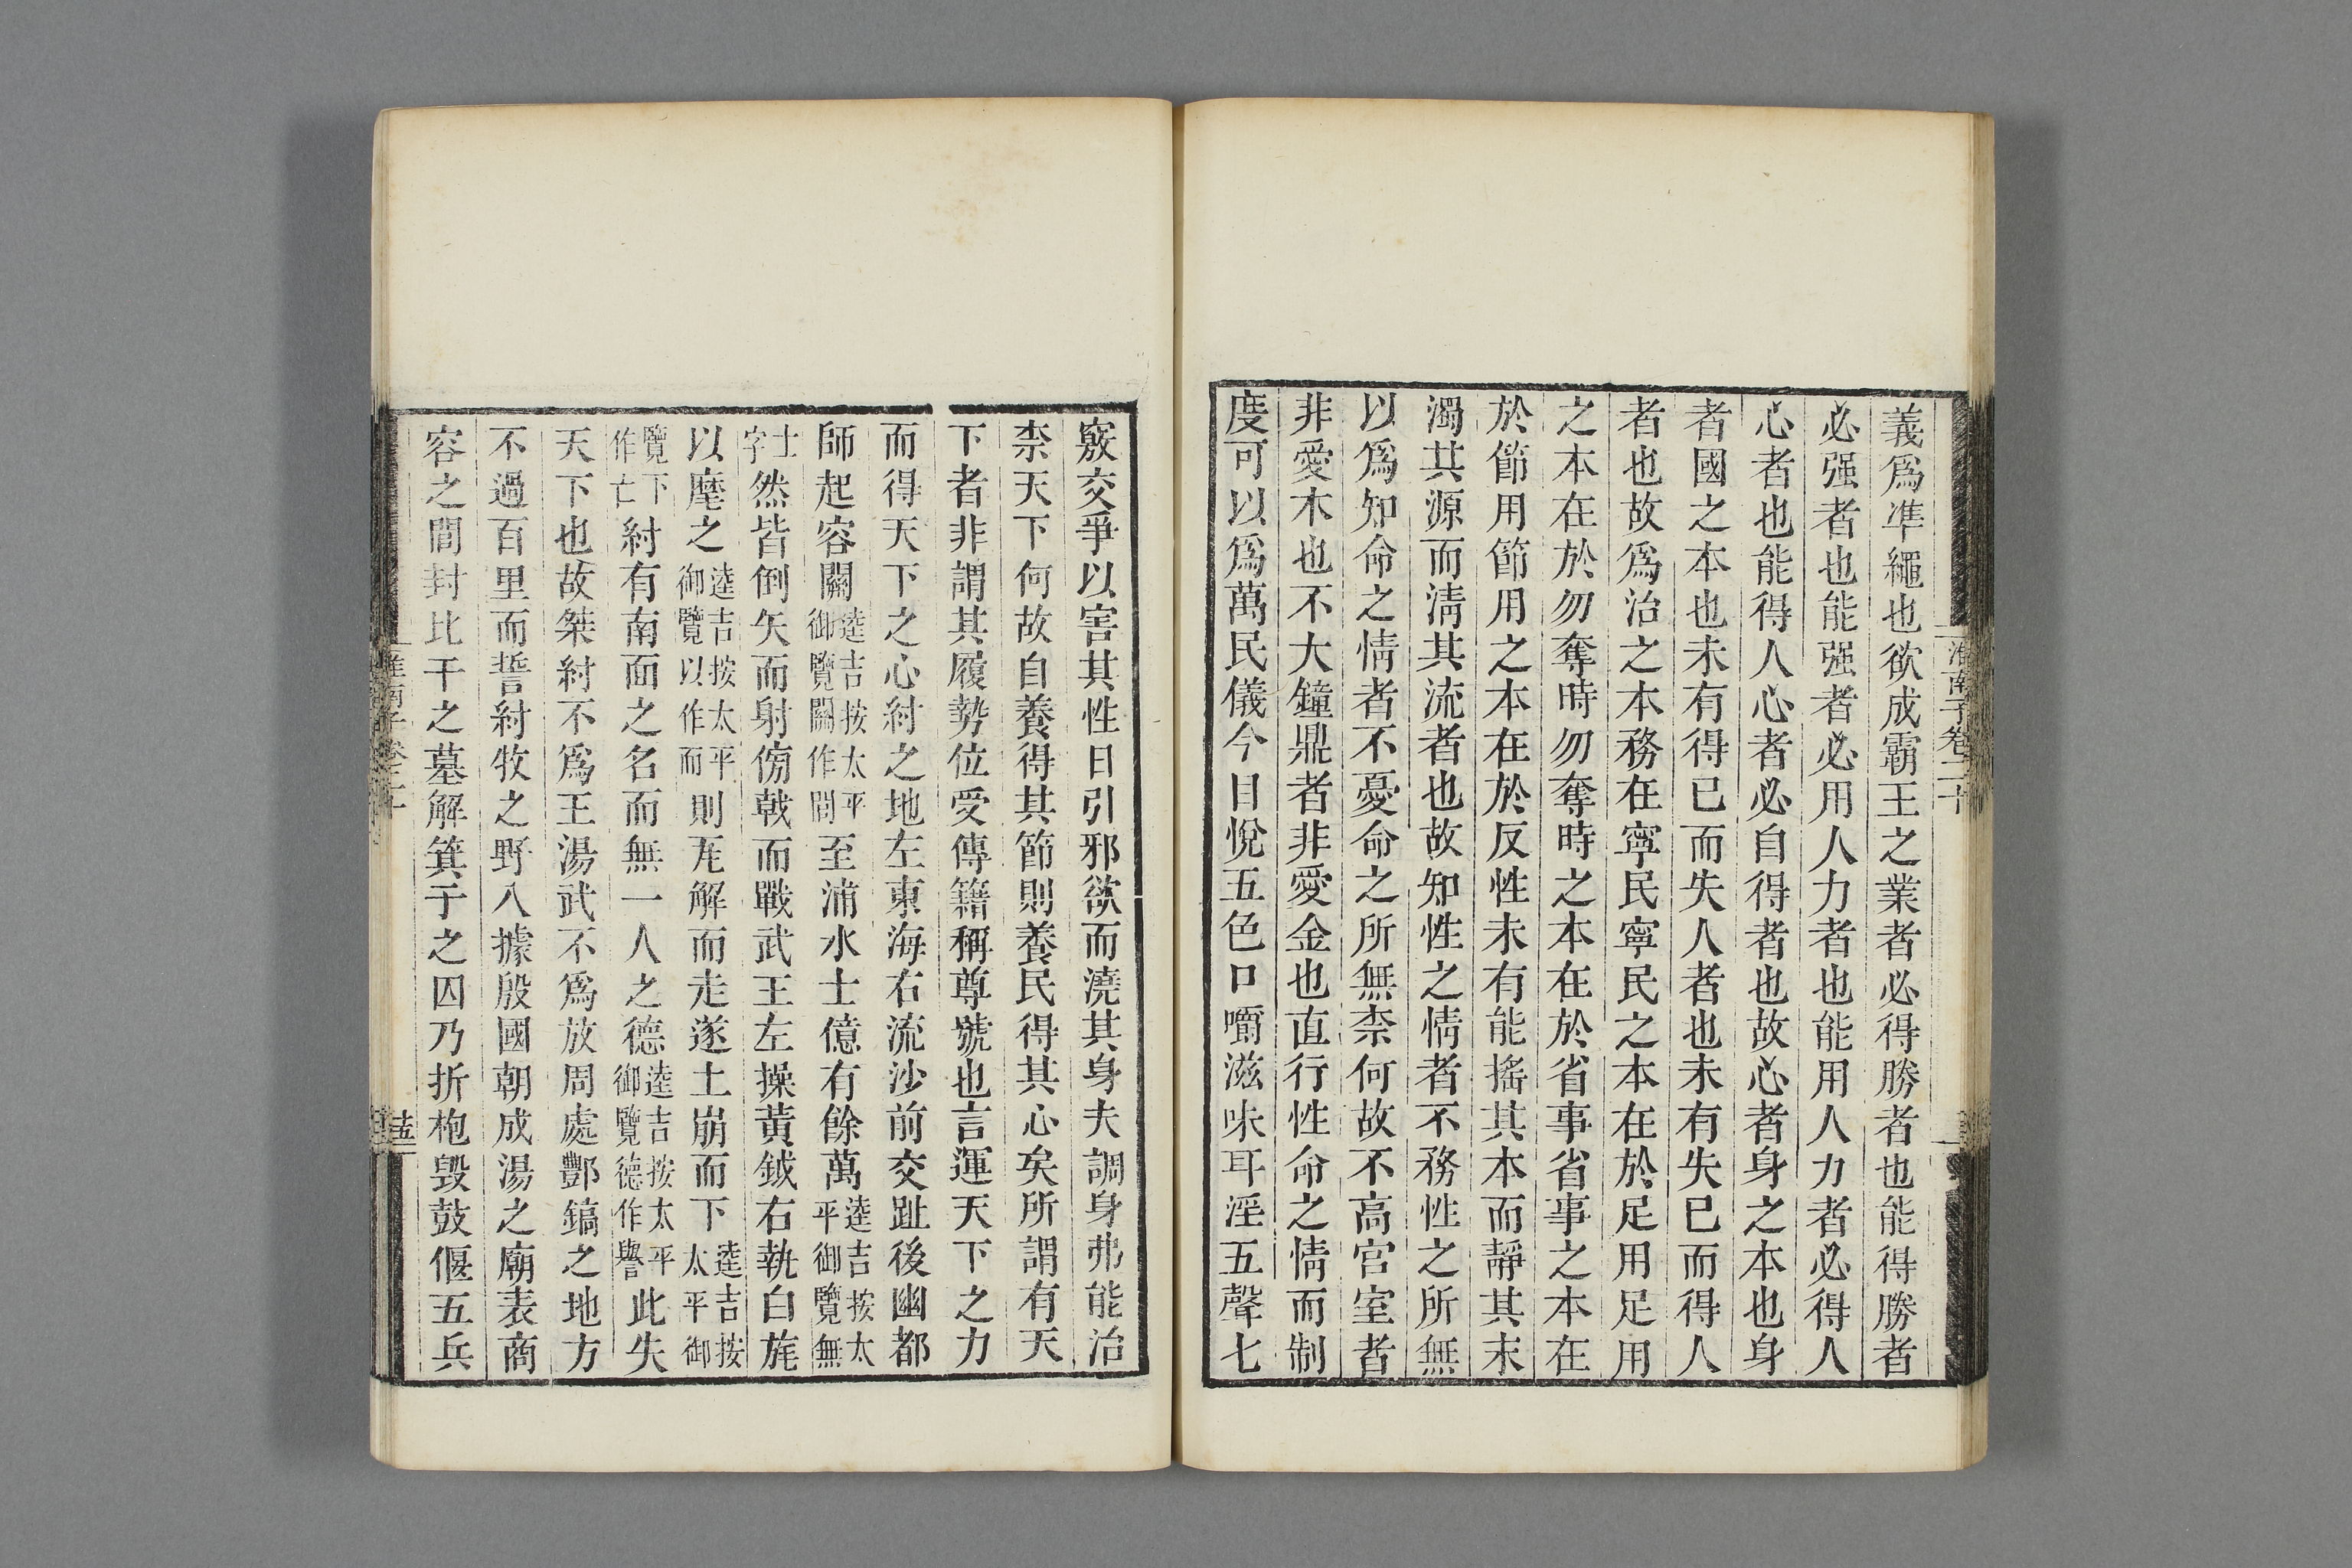 淮南子卷二十
義爲準繩也欲成霸王之業者必得勝者也能得勝者
必强者也能强者必用人力者也能用人力者必得人
心者也能得人心者必自得者也故心者身之本也身
者國之本也未有得已而失人者也未有失已而得人
者也故爲治之本務在寧民寧民之本在於足用足用
之本在於勿奪時勿奪時之本在於省事省事之本在
於節用節用之本在於反性未有能搖其本而靜其末
濁其源而淸其流者也故知性之情者不務性之所無
以爲知命之情者不憂命之所無柰何故不高宮室者
非愛木也不大鐘鼎者非愛金也直行性命之情而制
度可以爲萬民儀今目悅五色口嚼滋味耳淫五聲七
竅交爭以害其性日引邪欲而澆其身夫調身弗能治
柰天下何故自養得其節則養民得其心矣所謂有天
下者非謂其履勢位受傳籍稱尊號也言運天下之力
而得天下之心紂之地左東海右流沙前交趾後幽都
師起容關逵吉按太平御覽關作閭至浦水士億有餘萬逵吉按太平御覽無
士字然皆倒矢而射傍戟而戰武王左操黃鉞右執白旄
以麾之逵吉按太平御覽以作而則瓦解而走遂土崩而下逵吉按太平御
覽下作亡紂有南面之名而無一人之德逵吉按太平御覽德作譽此失
天下也故桀紂不爲王湯武不爲放周處酆鎬之地方
不過百里而誓紂牧之野入據殷國朝成湯之廟表商
容之閭封比干之墓解箕子之囚乃折枹毁鼓偃五兵
淮南子卷二十